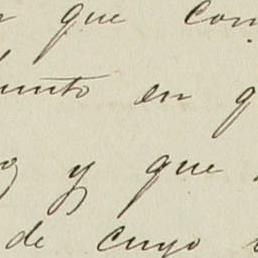 que com
punto en
y que
de cuyo